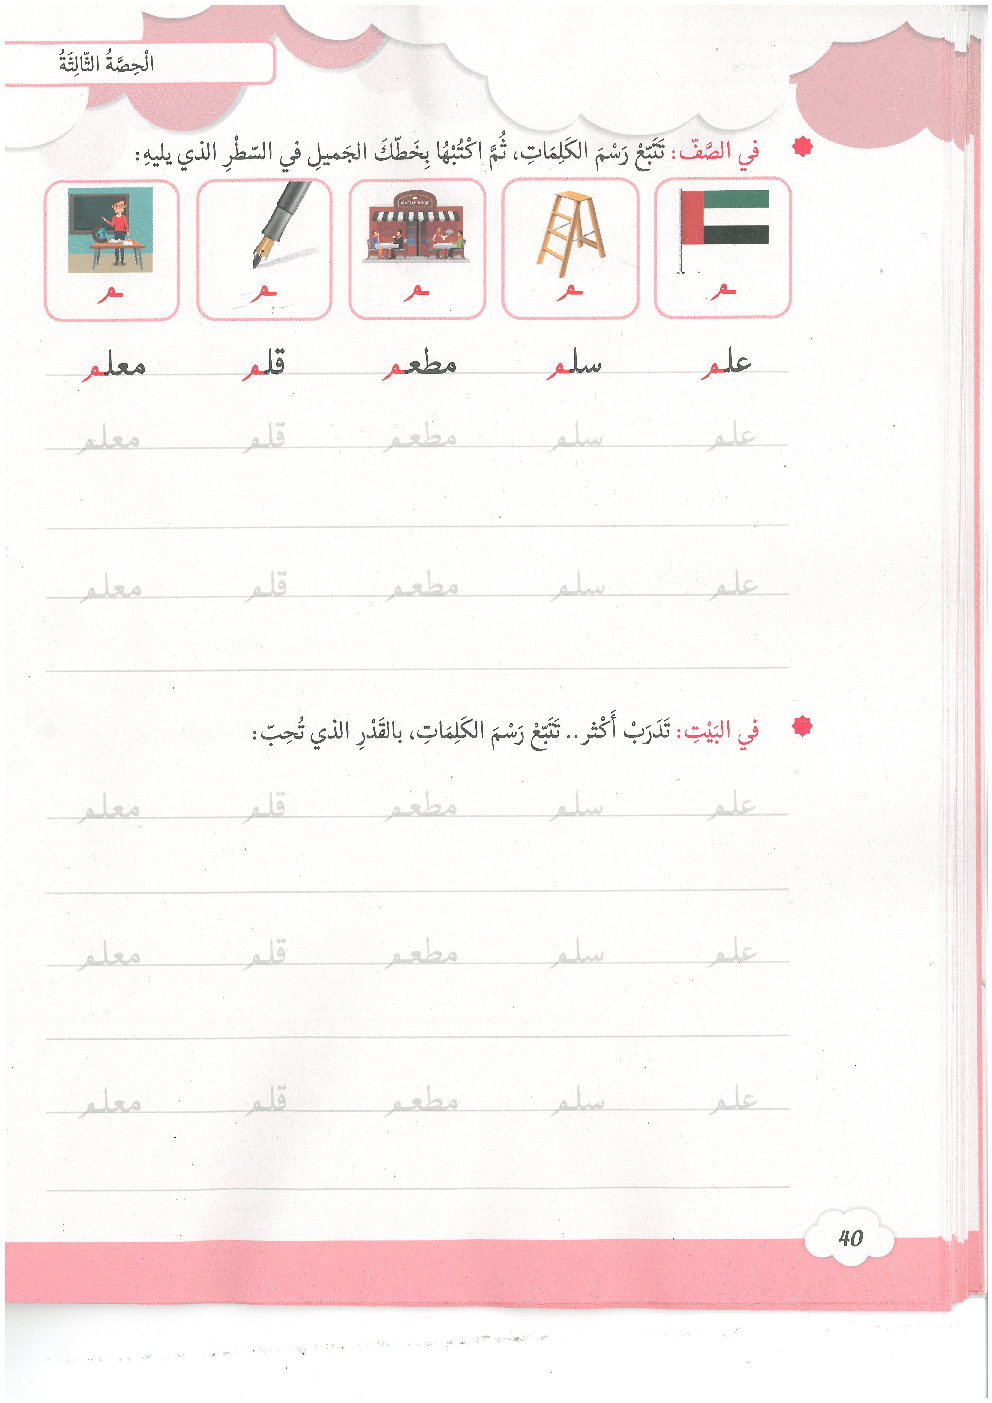 الْحِصَّةُ الثّالِثَةُ
في الصَّفّ: تَتَبّعْ رَسْمَ الكَلِمَاتِ، ثُمَّ اكْتُبْهُا بِخَطّكَ الجَميلِ في السّطْرِ الذي يليهِ:
ـم ـم ـم ـم ـم
علم سلم مطعم قلم معلم
علم سلم مطعم قلم معلم
علم سلم مطعم قلم معلم
في البَيْتِ: تَدَرَبْ أَكْثر.. تَتَبّعْ رَسْمَ الكَلِمَاتِ، بالقَدْرِ الذي تُحِبّ:
علم سلم مطعم قلم معلم
علم سلم مطعم قلم معلم
علم سلم مطعم قلم معلم
40